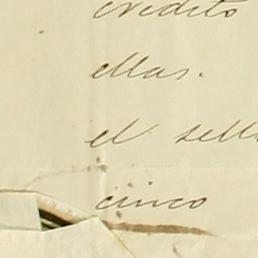 credito
ellas.
el sell
cinco